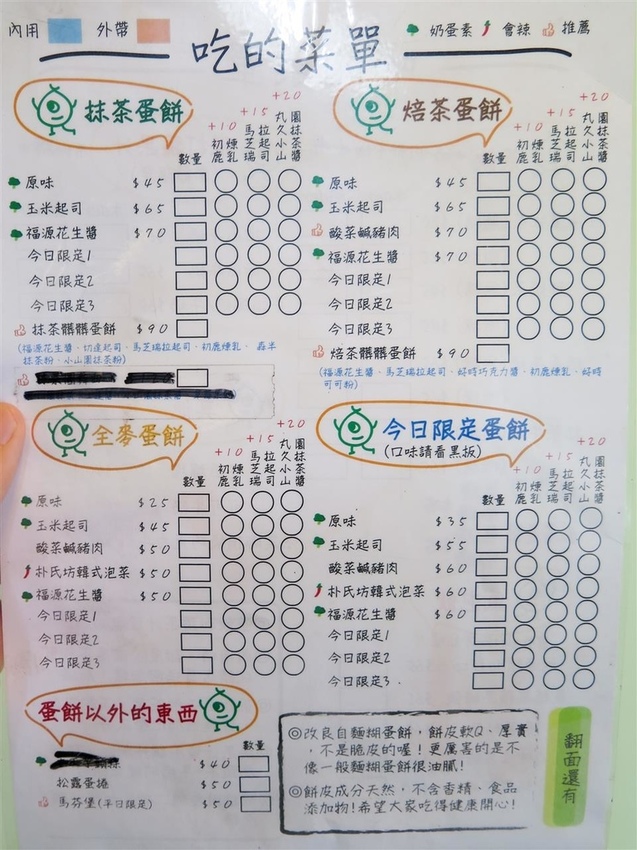 內用 外帶 吃的菜單 奶蛋素 會辣 推薦
抹茶蛋餅
數量 +10 初鹿煉乳 +15 馬芝瑞拉起司 +20 丸久小山園抹茶醬
原味 $45
玉米起司 $65
福源花生醬 $70
今日限定1
今日限定2
今日限定3
抹茶髒髒蛋餅 $90
(福源花生醬、切達起司、馬芝瑞拉起司、初鹿煉乳、森半
抹茶粉、小山園抹茶粉)
焙茶蛋餅
數量 +10 初鹿煉乳 +15 馬芝瑞拉起司 +20 丸久小山園抹茶醬
原味 $45
玉米起司 $65
酸菜鹹豬肉 $70
福源花生醬 $70
今日限定1
今日限定2
今日限定3
焙茶髒髒蛋餅 $90
(福源花生醬、馬芝瑞拉起司、好時巧克力醬、初鹿煉乳、好時
可可粉)
全麥蛋餅
數量 +10 初鹿煉乳 +15 馬芝瑞拉起司 +20 丸久小山園抹茶醬
原味 $25
玉米起司 $45
酸菜鹹豬肉 $50
朴氏坊韓式泡菜 $50
福源花生醬 $50
今日限定1
今日限定2
今日限定3
今日限定蛋餅
(口味請看黑板)
數量 +10 初鹿煉乳 +15 馬芝瑞拉起司 +20 丸久小山園抹茶醬
原味 $35
玉米起司 $55
酸菜鹹豬肉 $60
朴氏坊韓式泡菜 $60
福源花生醬 $60
今日限定1
今日限定2
今日限定3
蛋餅以外的東西
數量
$40
松露蛋捲 $50
馬芬堡(平日限定) $50
◎改良自麵糊蛋餅，餅皮軟Q、厚實
，不是脆皮的喔！更厲害的是不
像一般麵糊蛋餅很油膩！
◎餅皮成分天然，不含香精、食品
添加物！希望大家吃得健康開心！
翻面還有